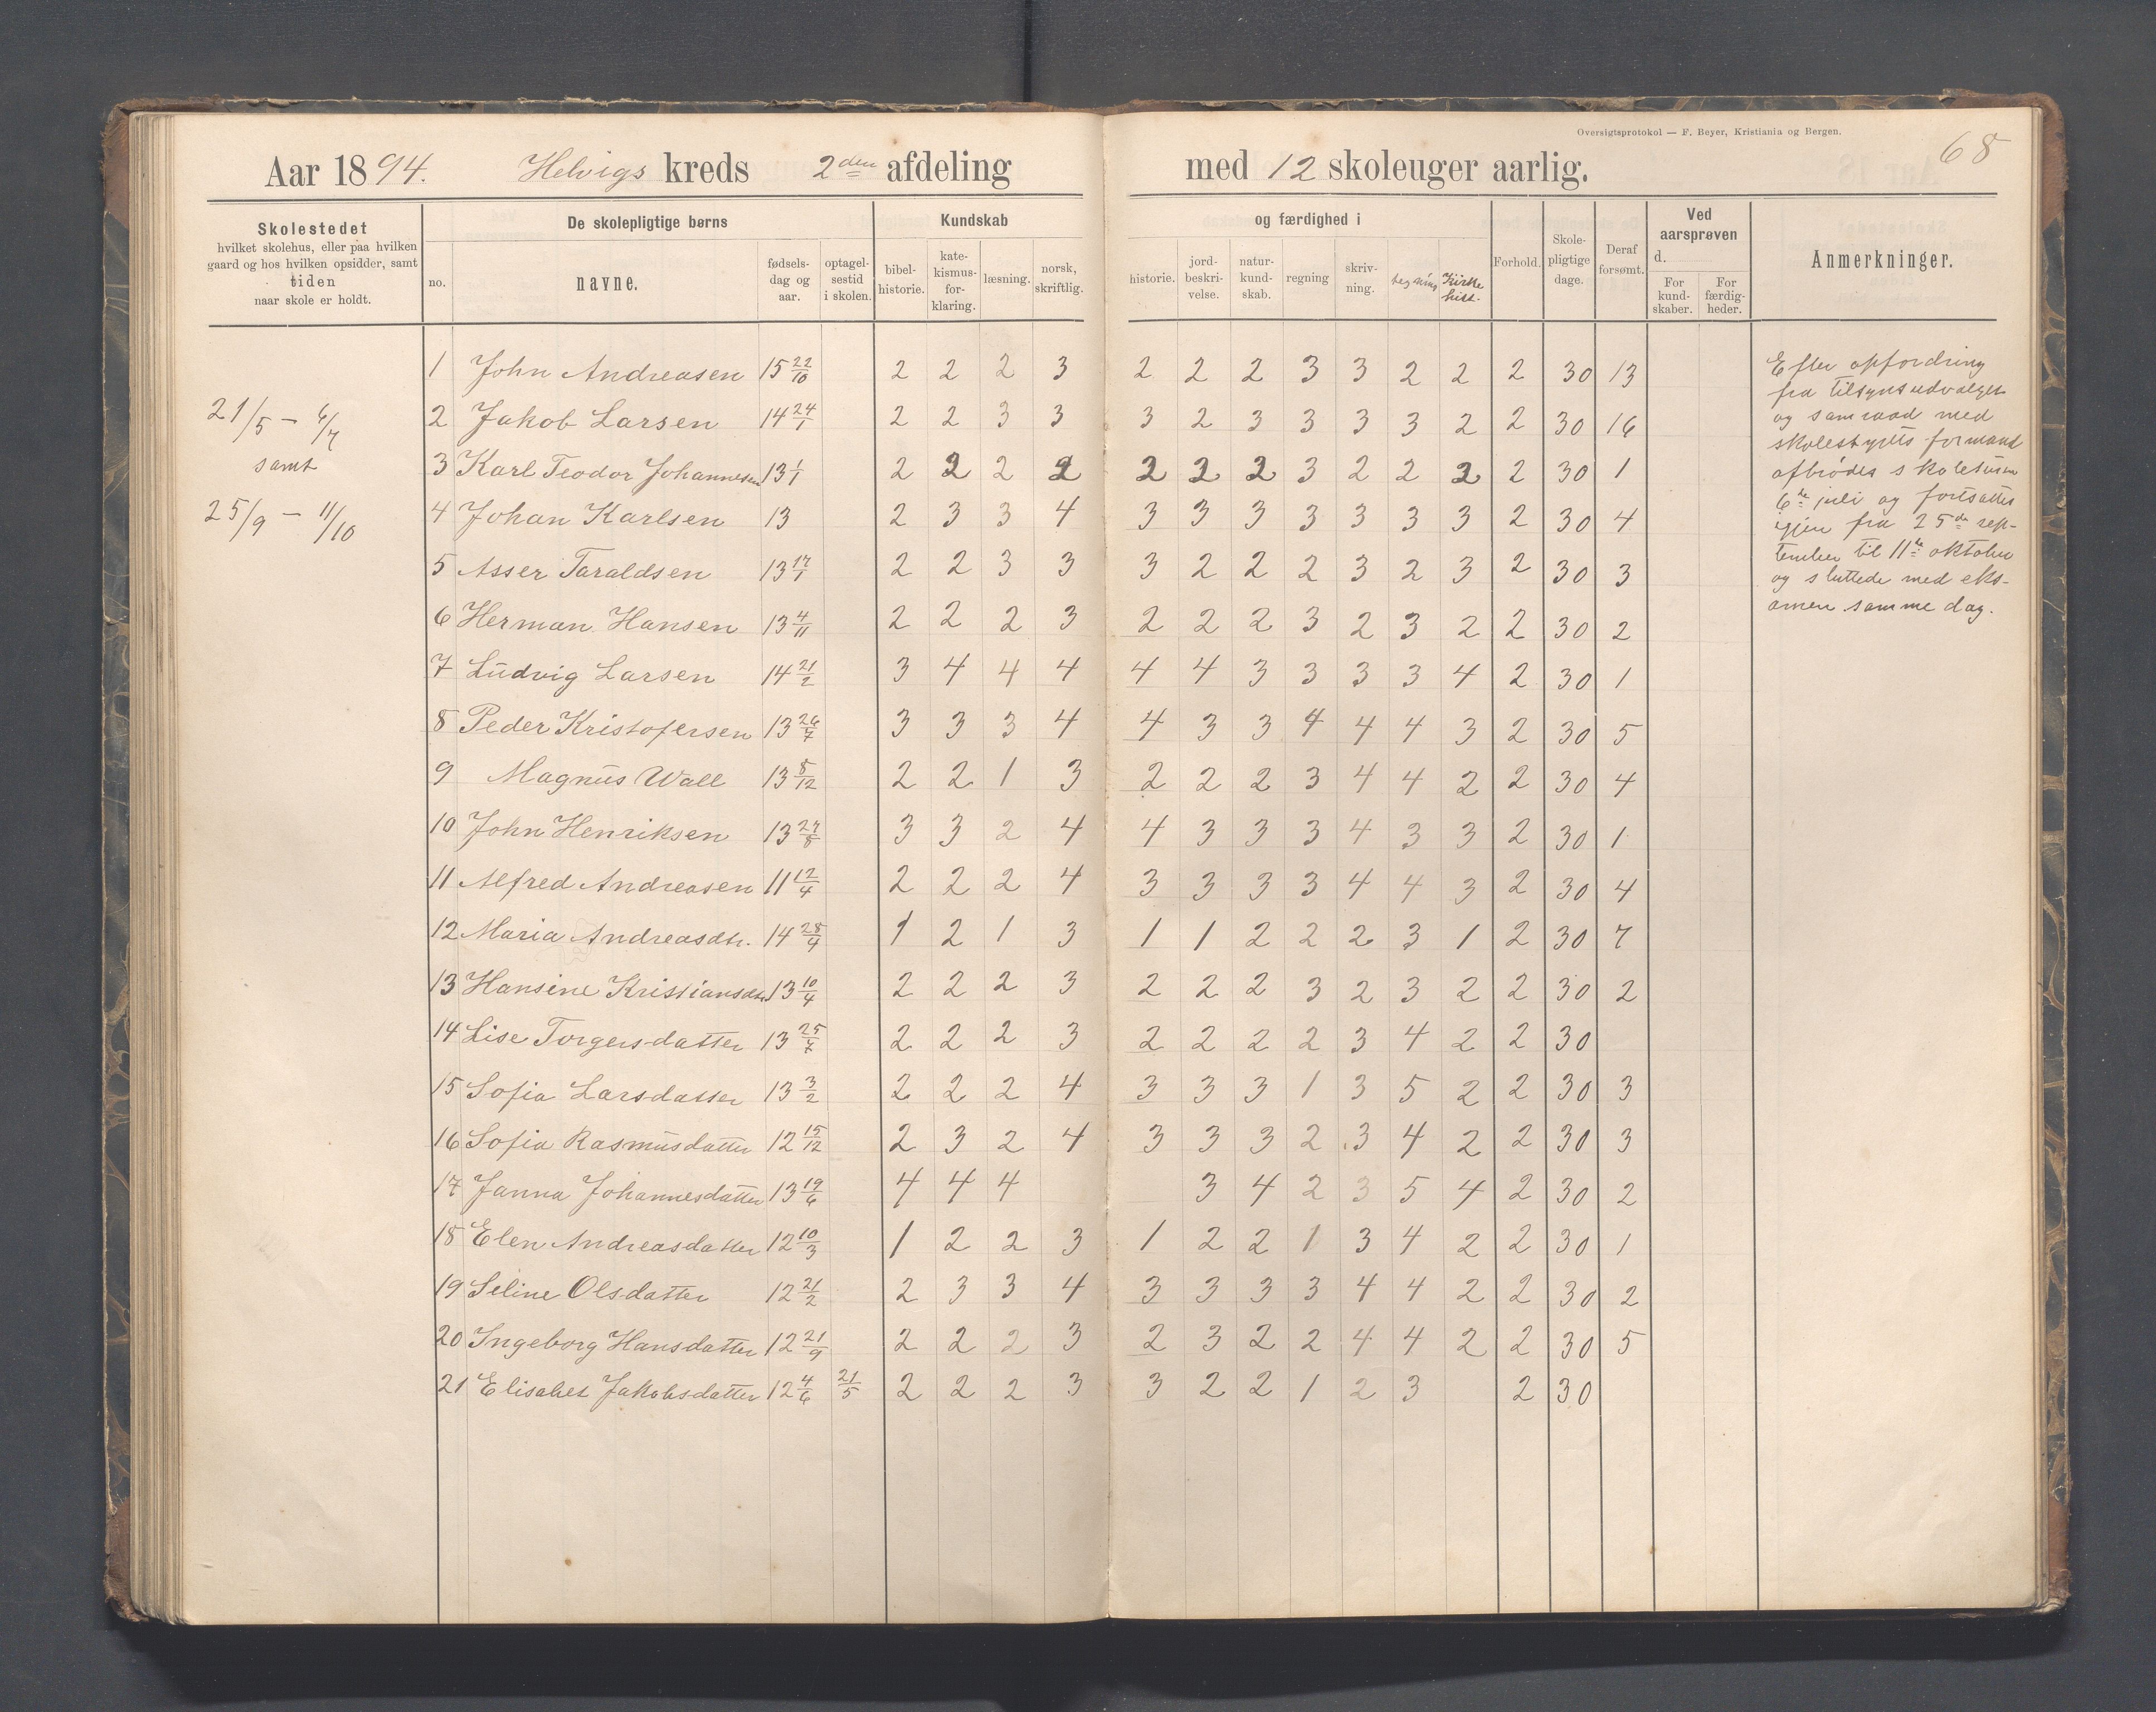 Oversigtsprotokol — F. Beyer, Kristiania og Bergen.
68
Aar 1894. Helvigs kreds 2den afdeling med 12 skoleuger aarlig.
Skolestedet
hvilket skolehus, eller paa hvilken
gaard og hos hvilken opsidder, samt
tiden
naar skole er holdt.
De skolepligtige børns
no.
navne.
fødsels-
dag og
aar.
optagel-
sestid
i skolen.
Kundskab og færdighed i
bibel-
historie.
kate-
kismus-
for-
klaring.
læsning.
norsk,
skriftlig.
historie.
jord-
beskri-
velse.
natur-
kund-
skab.
regning
skriv-
ning.
tegning
Kirke
hist.
Forhold.
Skole-
pligtige
dage.
Deraf
forsømt.
Ved
aarsprøven
d.
For
kund-
skaber.
For
færdig-
heder.
Anmerkninger.
21/5 – 6/7
samt
25/9 – 11/10
1 John Andreasen 15 22/10 2 2 2 3 2 2 2 3 3 2 2 2 30 13
2 Jakob Larsen 14 24/1 2 2 3 3 3 2 3 3 3 3 2 2 30 16
3 Karl Teodor Johannesen 13 1/1 2 2 2 2 2 2 2 3 2 2 2 2 30 1
4 Johan Karlsen 13 2 3 3 4 3 3 3 3 3 3 3 2 30 4
5 Asser Taraldsen 13 17/1 2 2 3 3 3 2 2 2 3 2 3 2 30 3
6 Herman Hansen 13 4/11 2 2 2 3 2 2 2 3 2 3 2 2 30 2
7 Ludvig Larsen 14 21/2 3 4 4 4 4 4 3 3 3 3 4 2 30 1
8 Peder Kristofersen 13 26/7 3 3 3 4 4 3 3 4 4 4 3 2 30 5
9 Magnus Wall 13 8/12 2 2 1 3 2 2 2 3 4 4 2 2 30 4
10 John Henriksen 13 27/8 3 3 2 4 4 3 3 3 4 3 3 2 30 1
11 Alfred Andreasen 11 12/4 2 2 2 4 3 3 3 3 4 4 3 2 30 4
12 Maria Andreasdtr. 14 28/4 1 2 1 3 1 1 2 2 2 3 1 2 30 7
13 Hansine Kristiansdtr 13 10/4 2 2 2 3 2 2 2 3 2 3 2 2 30 2
14 Lise Torgersdatter 13 25/7 2 2 2 3 2 2 2 2 3 4 2 2 30
15 Sofia Larsdatter 13 3/2 2 2 2 4 3 3 3 1 3 5 2 2 30 3
16 Sofia Rasmusdatter 12 15/12 2 3 2 4 3 3 3 2 3 4 2 2 30 3
17 Janna Johannesdatter 13 19/6 4 4 4 3 4 2 3 5 4 2 30 2
18 Elen Andreasdatter 12 10/3 1 2 2 3 1 2 2 1 3 4 2 2 30 1
19 Seline Olsdatter 12 21/2 2 3 3 4 3 3 3 3 4 4 2 2 30 2
20 Ingeborg Hansdatter 12 21/9 2 2 2 3 2 3 2 2 4 4 2 2 30 5
21 Elisabet Jakobsdatter 12 4/6 21/5 2 2 2 3 3 2 2 1 2 3 2 30
Efter opfordring
fra tilsynsudvalget
og samraad med
skolestyrets formand
afbrødes skoleturen
6te juli og fortsattes
igjen fra 25de sep-
tember til 11te oktober
og sluttede med eks-
amen samme dag.